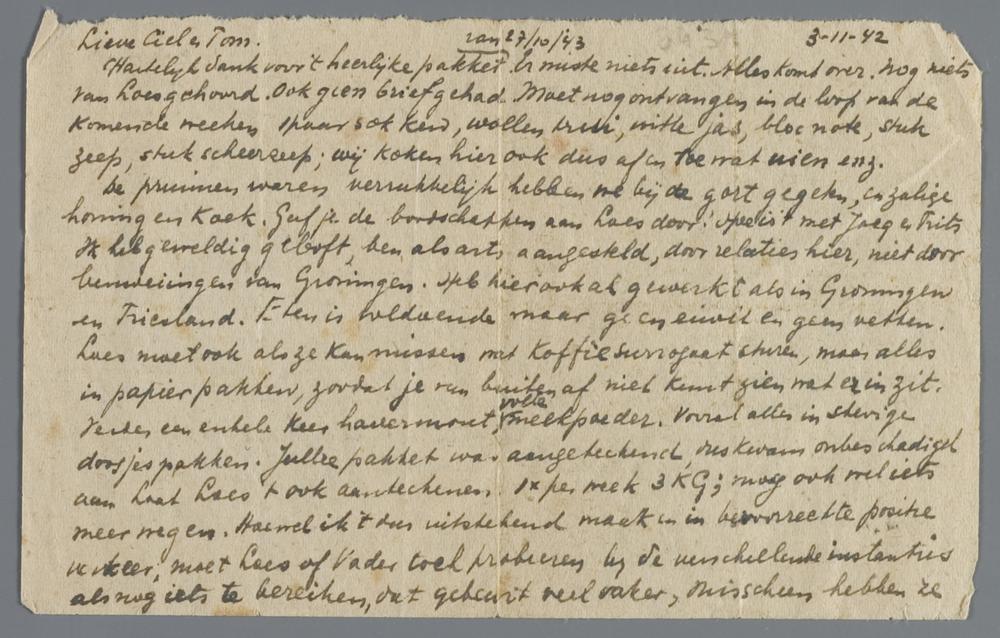 Lieve Ciel en Tom. van 27/10/43 3-11-42
Hartelijk dank voor 't heerlijke pakket. Er miste niets uit. Alles komt over. Nog niets
van Loes gehoord. Ook geen brief gehad. Moet nog ontvangen in de loop van de
komende weken 1 paar sokken, wollen trui, witte jas, blocnote, stuk
zeep, stuk scheerzeep; wij koken hier ook dus af en toe wat uien enz.
De pruimen waren verrukkelijk hebben we bij de gort gegeten, en zalige
honing en koek. Geef je de boodschappen aan Loes door! met Jaap en Frits
Ik heb geweldig geboft, ben als arts aangesteld, door relaties hier, niet door
bemoeiingen van Groningen. Heb hier ook al gewerkt als in Groningen
en Friesland. Eten is voldoende maar geen eiwit en geen vetten.
Loes moet ook als ze kan missen wat koffiesurrogaat sturen, maar alles
in papier pakken, zoodat je van buiten af niet kunt zien wat er in zit.
Verder een enkele keer havermout, volle melkpoeder. Vooral alles in stevige
doosjes pakken. Jullie pakket was aangeteekend, dus kwam onbeschadigd
aan Laat Loes 't ook aanteekenen. 1x per week 3 KG; mag ook wel iets
meer wegen. Hoewel ik 't dus uitstekend maak en in bevoorrechte positie
verkeer, moet Loes of Vader toch probeeren bij de verschillende instanties
alsnog iets te bereiken, dat gebeurt veel vaker, misschien hebben ze